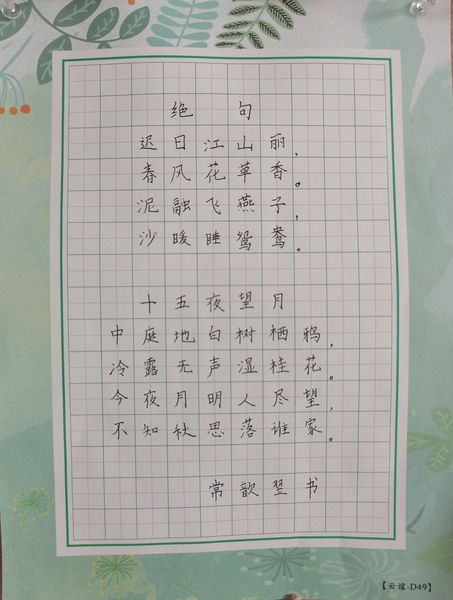 绝句
迟日江山丽，
春风花草香。
泥融飞燕子，
沙暖睡鸳鸯。
十五夜望月
中庭地白树栖鸦，
冷露无声湿桂花。
今夜月明人尽望，
不知秋思落谁家。
常歆翌书
【云谊-D49】